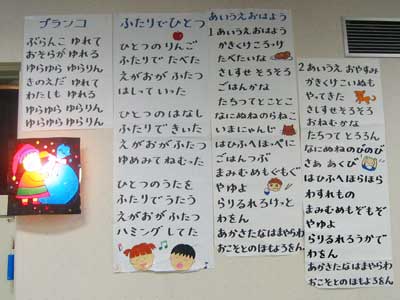 ブランコ
ぶらんこ ゆれて
おそらが ゆれる
ゆらゆら ゆらりん
きのえだ ゆれて
わたしも ゆれる
ゆらゆら ゆらりん
ゆらゆら ゆらりん
ふたりでひとつ
ひとつの りんご
ふたりで たべた
えがおが ふたつ
はしって いった
ひとつの はなし
ふたりで きいた
えがおが ふたつ
ゆめみて ねむった
ひとつの うたを
ふたりで うたう
えがおが ふたつ
ハミング してた
あいうえおはよう
1 あいうえ おはよう
かきくけ ころっけ
たべたいな
さしすせ そろそろ
ごはんかな
たちつて とことこ
なにぬねの らねこ
いまにゃんじ
はひふへ ほっぺに
ごはんつぶ
まみむめ もぐもぐ
やゆよ
らりるれ ろけっと
わをん
あかさたなはまやらわ
おこそとのほもよろをん
2 あいうえ おやすみ
かきくけ こいぬも
やってきた
さしすせ そろそろ
おねむかな
たちつて とろろん
なにぬね のびのび
さあ あくび
はひふへ ほらほら
わすれもの
まみむめ もぞもぞ
やゆよ
らりるれ ろうかで
わをん
あかさたなはまやらわ
おこそとのほもよろをん